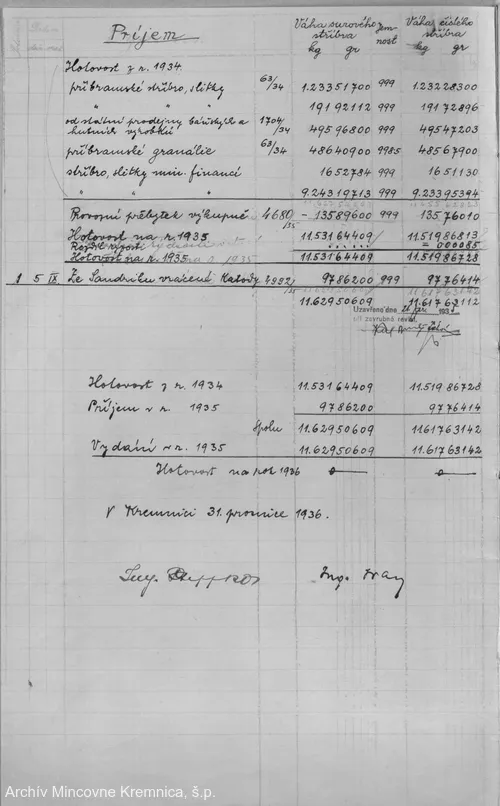 Príjem
Váha surového stříbra
kg gr
Jemnost
Váha čistého stříbra
kg gr
Hotovost z r. 1934
příbramské stříbro, slitky 63/34 1.23351700 999 1.23228300
" " " 19192112 999 19172896
od státní prodejny báňských a hutních výrobků 1704/34 49596800 999 49547203
příbramské granálie 63/34 48640900 9985 48567900
stříbro, slitky min. financí 1652784 999 1651130
" " " 9.24319713 999 9.23395394
Provozní přebytek výkupné 4680/35 - 13589600 999 13576010
Hotovost na r. 1935 11.53164409 11.51986813
= 000085
Hotovost na r. 1935 11.53164409 11.51986728
1 5 IX Ze Sandriku vrácené Katody 4992/35 9786200 999 9776414
11.62950609 11.61763112
Uzavřeno dne
při závěrubná reviz.
Hotovost z r. 1934 11.53164409 11.51986728
Příjem v r. 1935 9786200 9776414
Spolu 11.62950609 11.61763142
Vydání v r. 1935 11.62950609 11.61763142
Hotovost na rok 1936 0 0
V Kremnici 31. prosince 1936.
Ing.
Ing.
Archív Mincovne Kremnica, š.p.